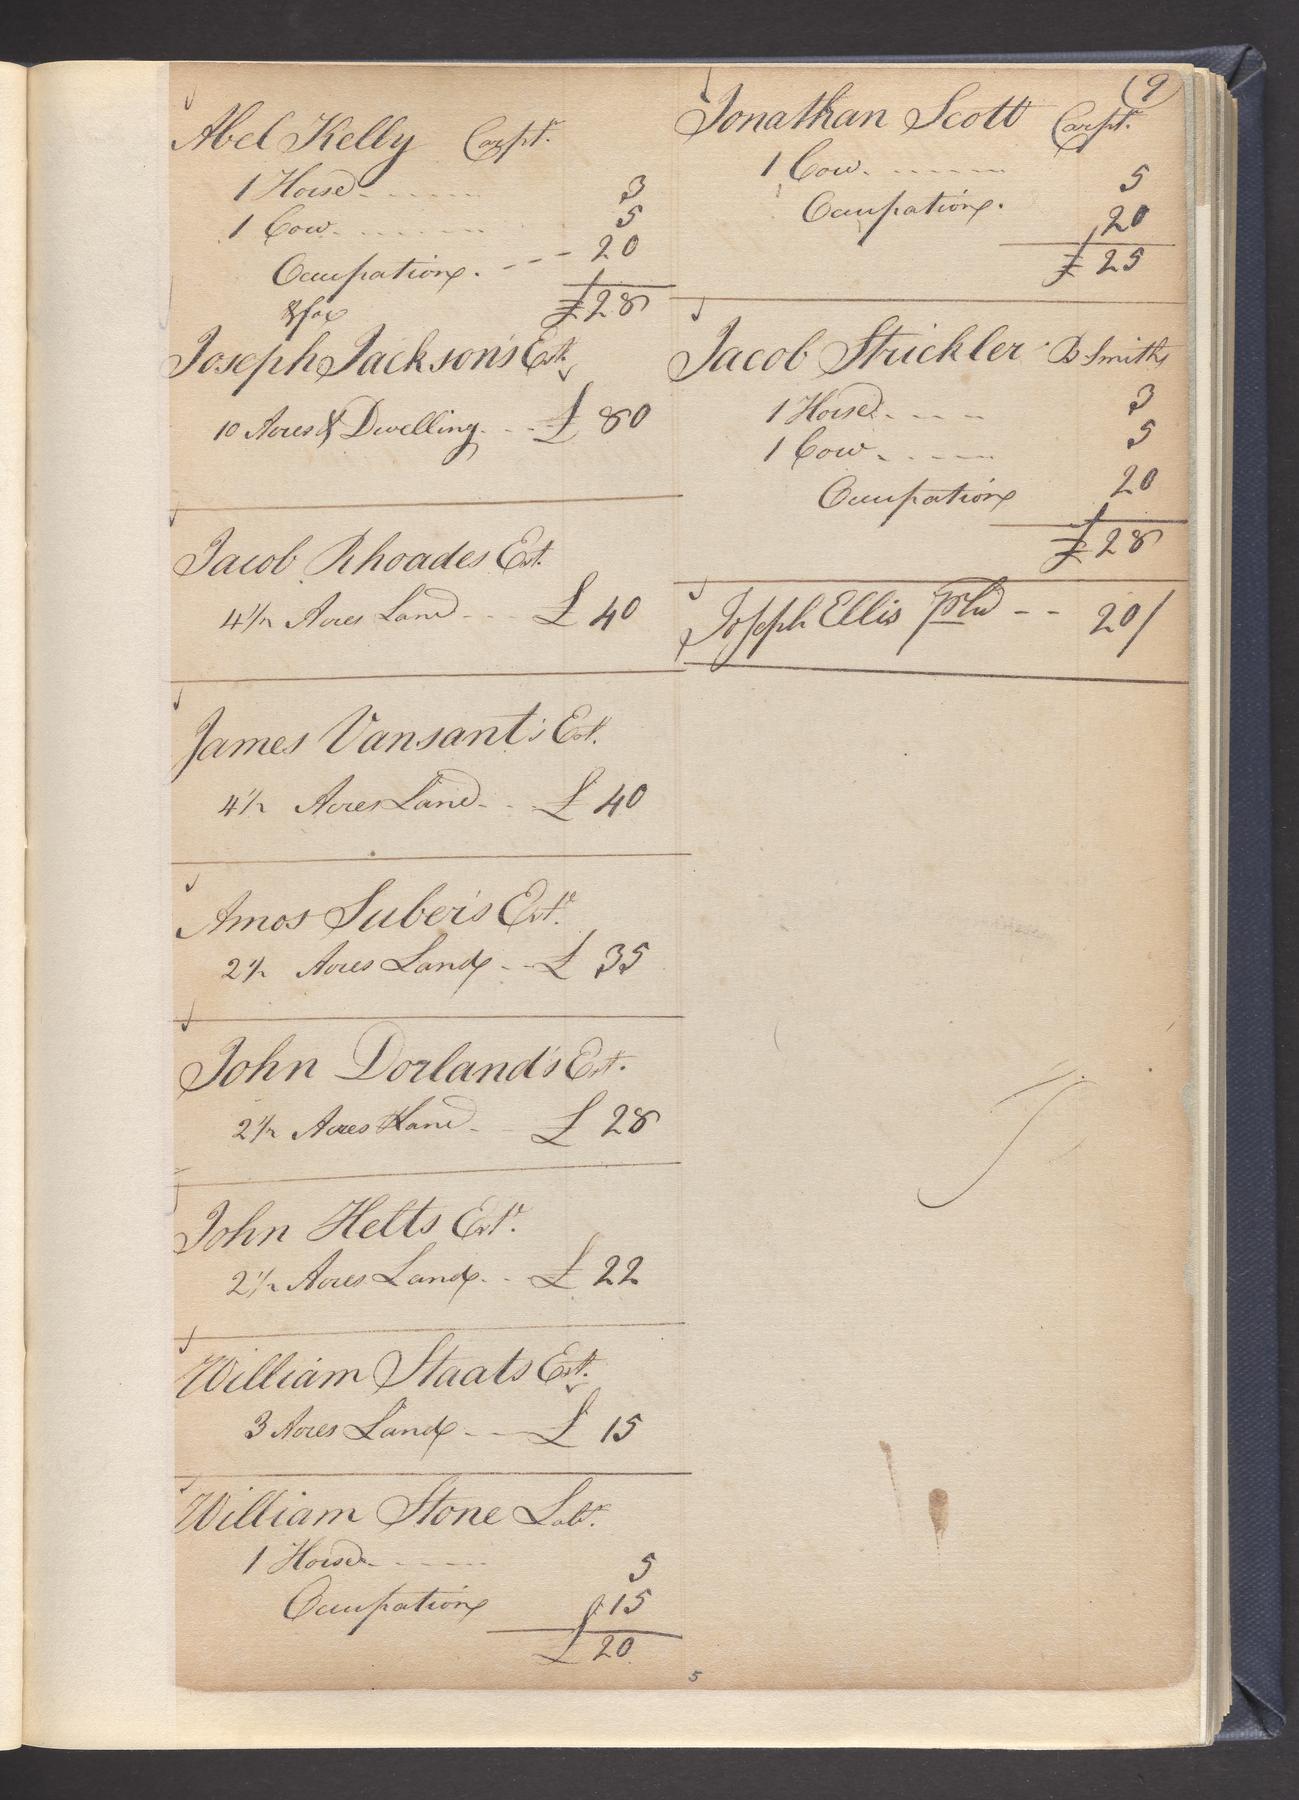 Abel Kelly Carpt.
1 Horse 3
1 Cow 5
Occupation 20
£28
Joseph Jackson's Est.
10 Acres & Dwelling £ 80
Jacob Rhoades Est.
4 1/2 Acres Land £ 40
James Vansant's Est.
4 1/2 Acres Land £ 40
Amos Suber's Est.
2 1/2 Acres Land £ 35
John Dorland's Est.
2 1/2 Acres Land £ 28
John Helts Est.
2 1/2 Acres Land £ 22
William Staats Est.
3 Acres Land £ 15
William Stone Labr.
1 Horse 5
Occupation 15
£ 20
5
(9
Jonathan Scott Carpt.
1 Cow 5
Occupation 20
£ 25
Jacob Strickler B Smith
1 Horse 3
1 Cow 5
Occupation 20
£ 28
Joseph Ellis 20/